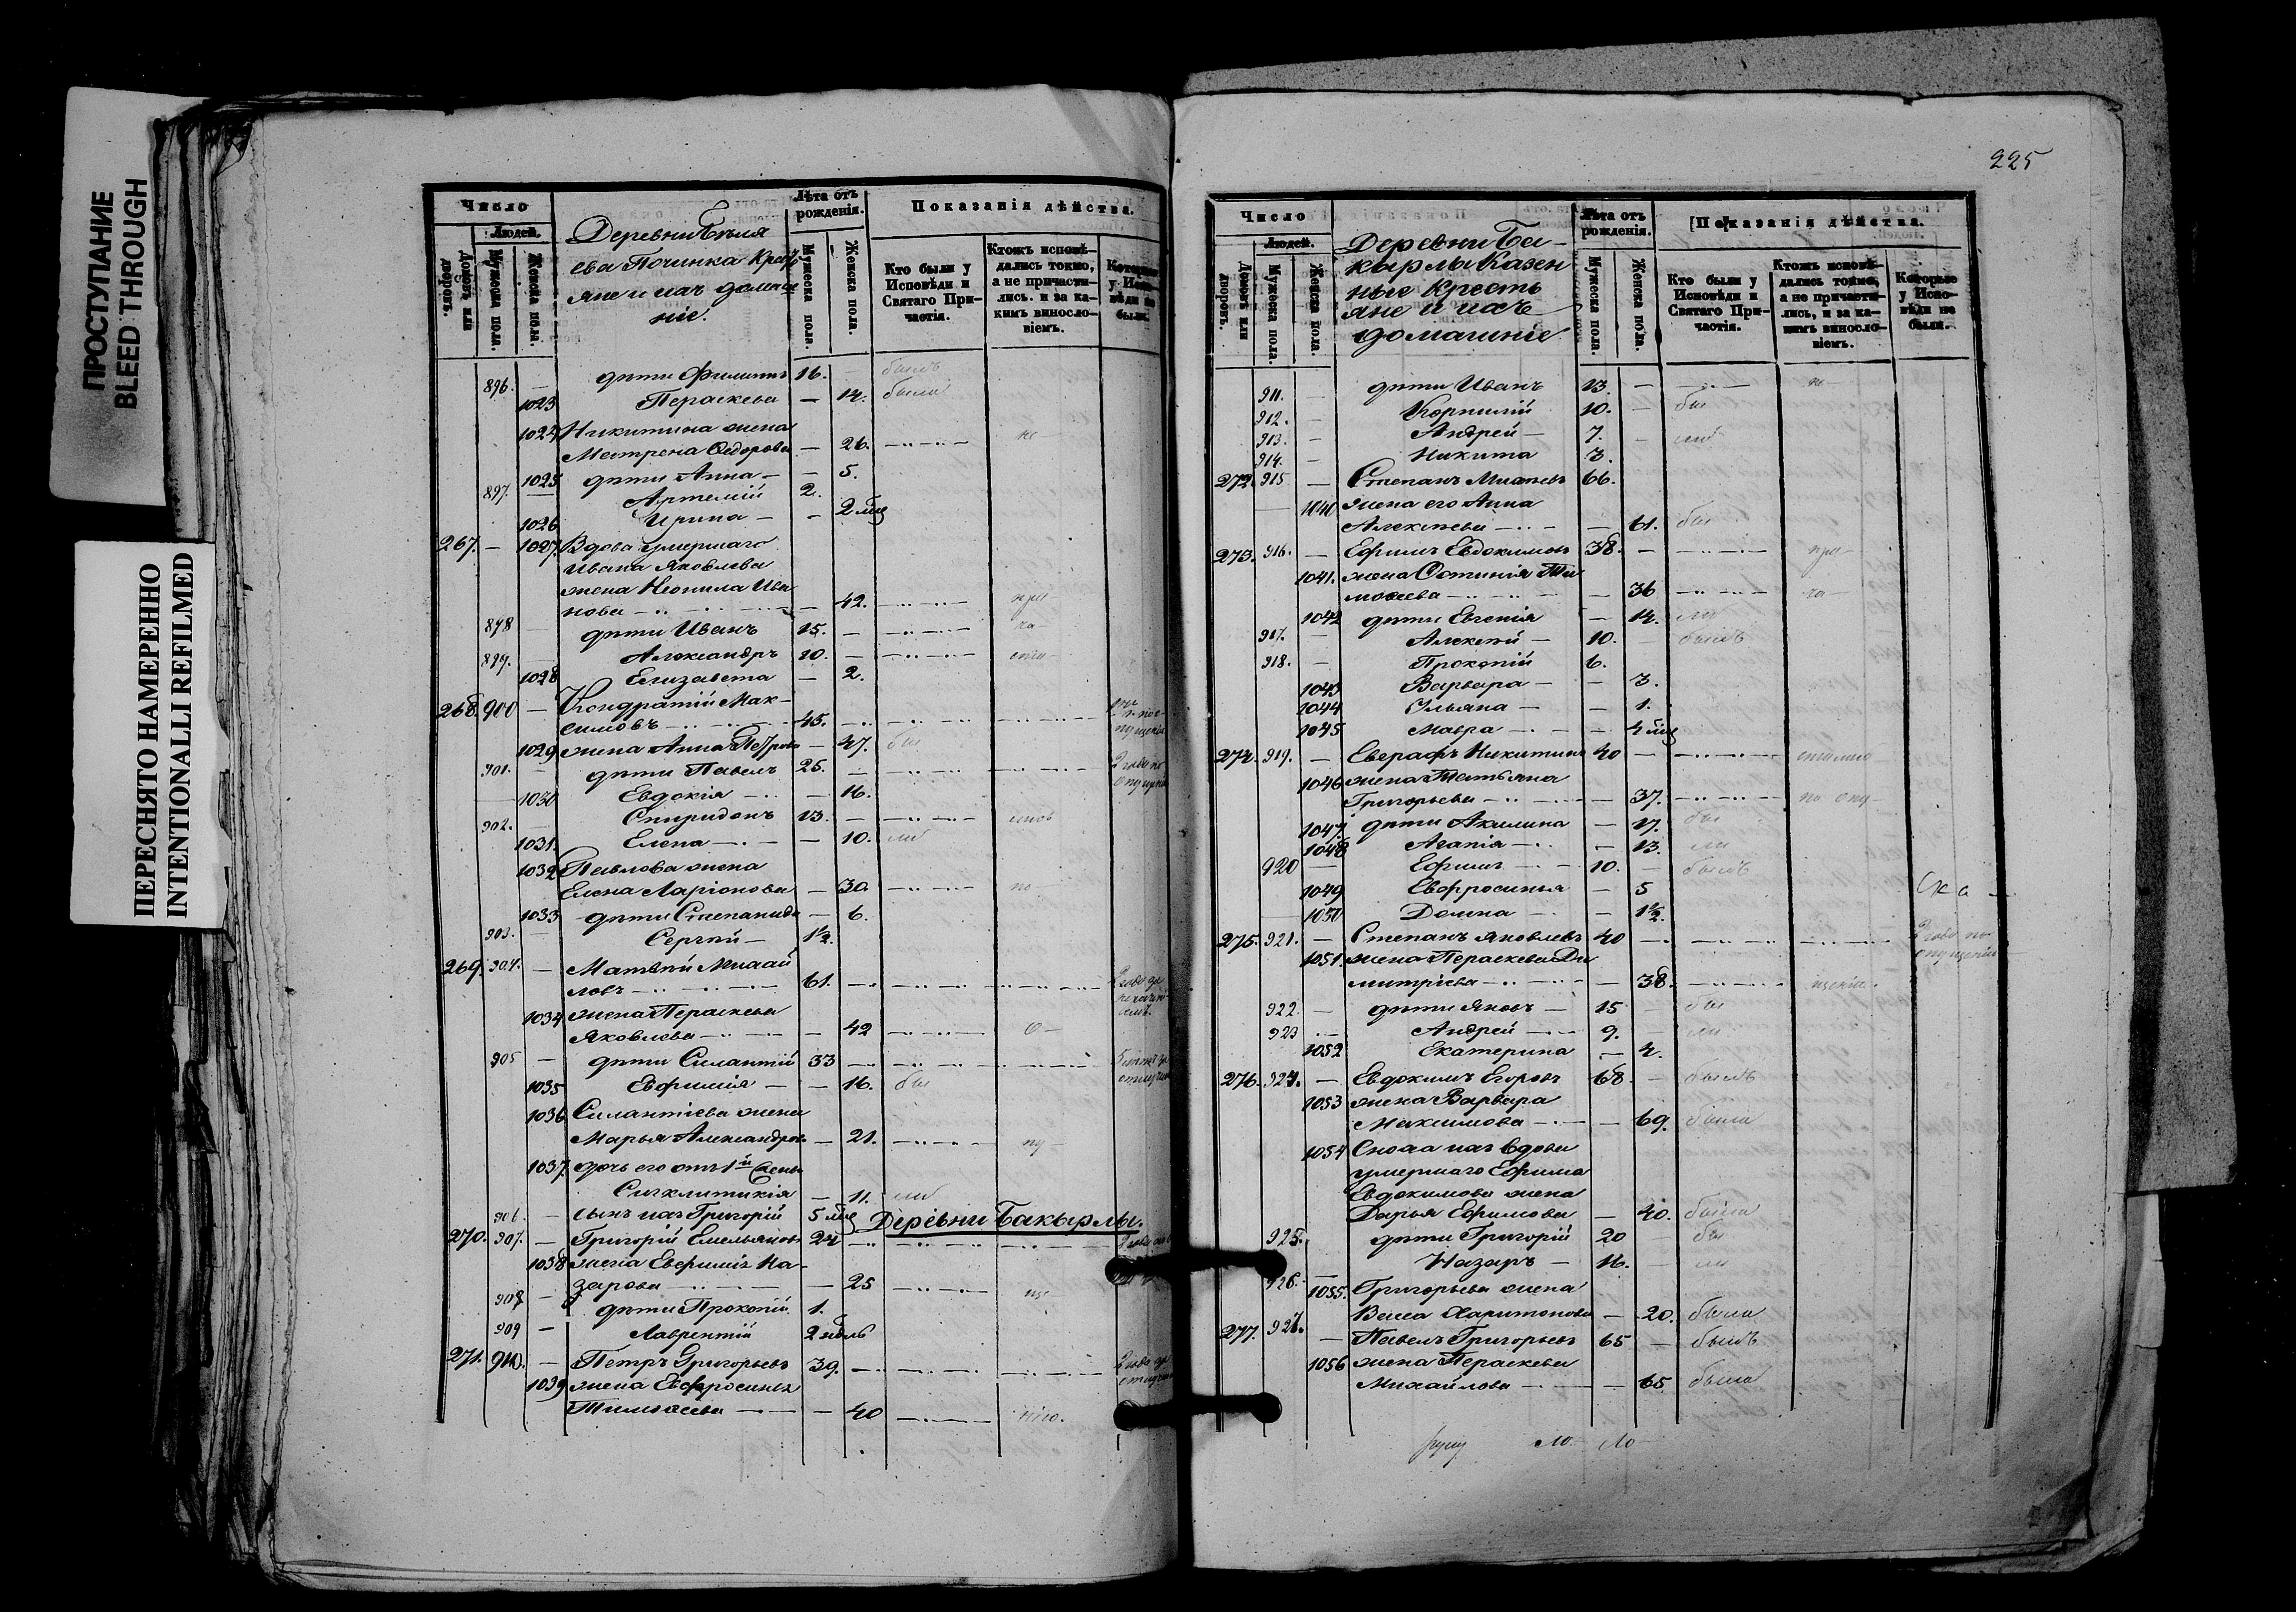 ПРОСТУПАНИЕ
BLEED THROUGH
ПЕРЕСНЯТО НАМЕРЕННО
INTENTIONALLI REFILMED
Число
Людей.
Домовъ или дворовъ.
Мужеска пола.
Женска пола.
Деревни
ева Починка Кресть
яне и ихъ домаш
ніе.
Лѣта отъ рожденія.
Мужеска пола.
Женска пола.
Показанія дѣйства.
Кто были у Исповѣди и Святаго Причастія.
Ктожъ исповѣдались токмо, а не причастились. и за какимъ винословіемъ.
Которые у Исповѣди не были.
896. — дѣти Филиппъ 16. — былъ
1023 Параскева — 14. была
1024 Никитина жена
Матрена Ѳедорова — 26.
1025 дѣти Анна — — 5.
897. — Артемій 2.
1026 Ирина — — 2 мѣц
267. — 1027. Вдова умершаго
Ивана Яковлева
жена Неонила Ива
нова — 42.
898 — дѣти Иванъ 15. —
899. — Александръ 10. —
1028 Елизавета — 2.
268. 900 — Кондратій Мак-
симовъ 45.
1029 жена Анна Петрова — 47. бы
901. — дѣти Павелъ 25. —
1030 Евдокія — — 16.
902. — Спиридонъ 13. —
1031. Елена — — 10. ли
1032 Павлова жена
Елена Ларіонова — 30.
1033 дѣти Степанида — 6.
903. — Сергѣй — 1½.
269. 904. — Матвѣй Михай
ловъ 61.
1034 жена Параскева
Яковлева — 42
905 — дѣти Силантій 33
1035 Евфимія — — 16. бы
1036 Силантіева жена
Марья Александрова — 21.
1037. дочь его отъ 1й жены
Сигклитикія — 11. ли
906. — сынъ ихъ Григорій 5 мѣц
Деревни Бакырлы.
270. 907. — Григорій Емельяновъ 24
1038 жена Евфимія На-
зарова — 25
908 — дѣти Прокопій 1.
909 — Лаврентій 2 нѣдль
271. 910. — Петръ Григорьевъ 39.
1039 жена Евфросинья
Тимоѳеева — 40
225
Число
Людей.
Домовъ или дворовъ.
Мужеска пола.
Женска пола.
Деревни Ба-
кырлы Казен
ные кресть
яне и ихъ
домашніе
Лѣта отъ рожденія.
Мужеска пола.
Женска пола.
Показанія дѣйства.
Кто были у Исповѣди и Святаго Причастія.
Ктожъ исповѣдались токмо, а не причастились, и за какимъ винословіемъ.
Которые у Исповѣди не были.
911. — дѣти Иванъ 13. —
912. — Корнилій 10. — бы
913. — Андрей — 7. — ли
914. — Никита 3.
272. 915 — Степанъ 66.
1040 жена его Анна
Алексѣева — 61. бы
273. 916. — Ефимъ Евдокимовъ 38. —
1041. жена Ѳотинія Ти
моѳеева — 36
1042 дѣти Евгенія — 14. ли
917. — Алексѣй — 10. былъ
918. — Прокопій 6.
1043 Варвара — — 3.
1044 Ульяна — — 1.
1045 Мавра — — 4 мѣц
274. 919. — Евграфъ Никитинъ 40 —
1046 жена Татьяна
Григорьева — 37.
1047. дѣти Акилина — 17. бы
1048 Агапія — — 13. ли
920 — Ефимъ — 10. — былъ
1049 Евфросинья — 5
1050 Домна — — 1½.
275. 921. — Степанъ Яковлевъ 40 —
1051. жена Параскева Ди
митріева — 38.
922. — дѣти Яковъ — 15 бы
923 — Андрей — 9. ли
1052 Екатерина — 4.
276. 924. — Евдокимъ Егоровъ 68. — былъ
1053 жена Варвара
Максимова — 69. была
1054 Сноха ихъ вдова
умершаго Ефима
Евдокимова жена
Дарья Ефимова — 40. была
925. дѣти Григорій 20 — бы
926. — Назаръ — 16. — ли
1055. Григорьева жена
Васса Харитонова — 20. была
277. 927. — Павелъ Григорьевъ 65 — былъ
1056 жена Параскева
Михайлова — 65 была